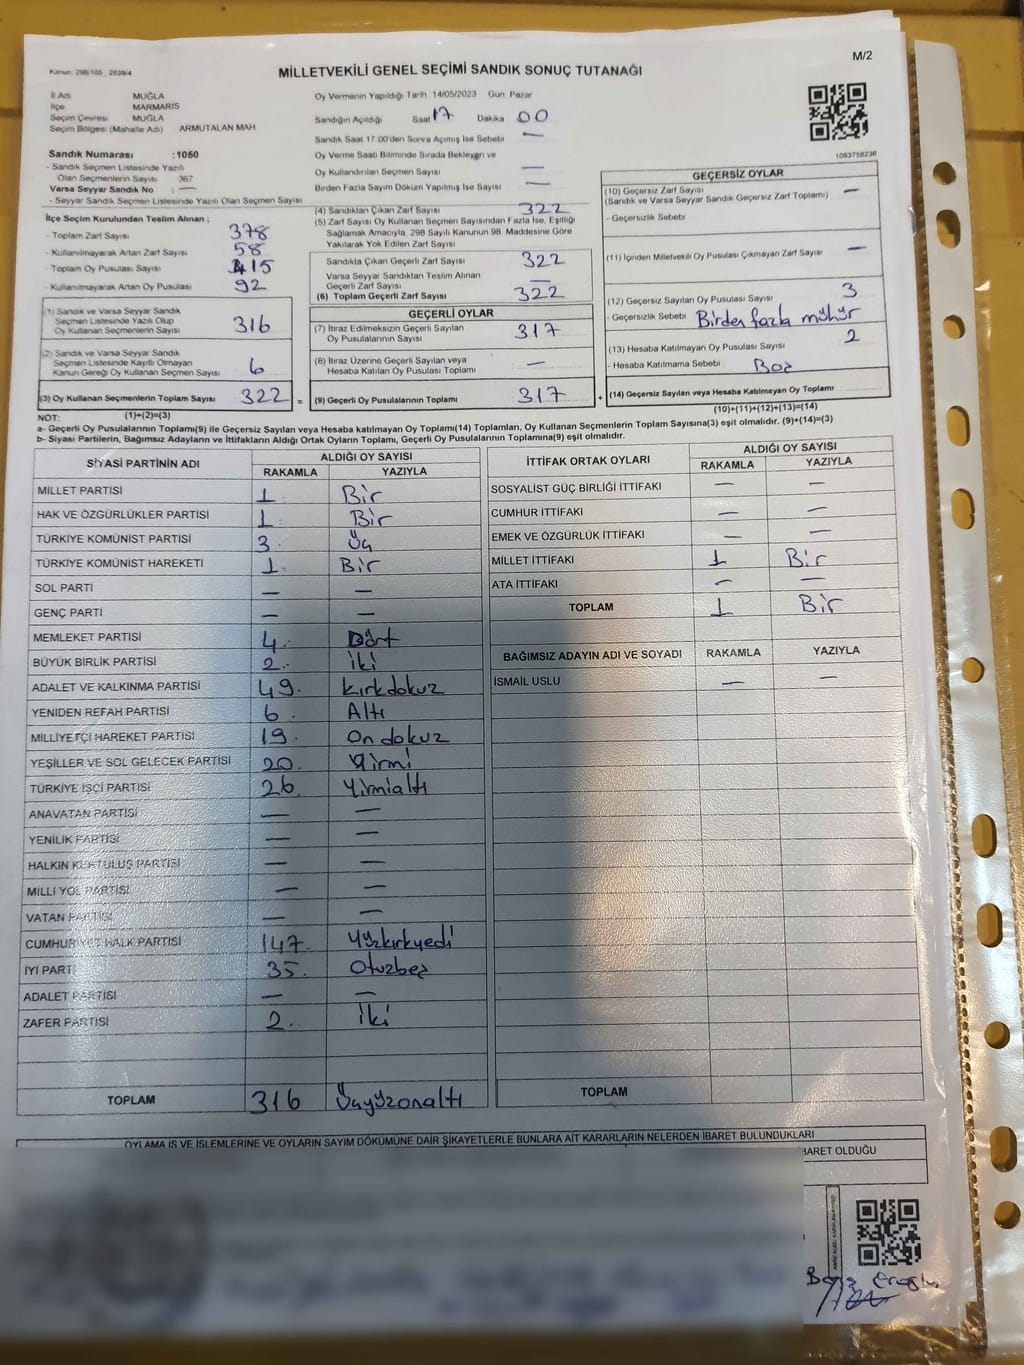 M/2
Kanun: 298/105 , 2839/4
MİLLETVEKİLİ GENEL SEÇİMİ SANDIK SONUÇ TUTANAĞI
İl Adı MUĞLA
İlçe MARMARİS
Seçim Çevresi MUĞLA
Seçim Bölgesi (Mahalle Adı) ARMUTALAN MAH
Oy Vermenin Yapıldığı Tarih 14/05/2023 Gün: Pazar
Sandığın Açıldığı Saat 17 Dakika 00
Sandık Saat 17.00'den Sonra Açılmış İse Sebebi —
Oy Verme Saati Bitiminde Sırada Bekleyen ve
Oy Kullandırılan Seçmen Sayısı —
Birden Fazla Sayım Döküm Yapılmış İse Sayısı —
1083758236
Sandık Numarası :1050
- Sandık Seçmen Listesinde Yazılı
Olan Seçmenlerin Sayısı 367
Varsa Seyyar Sandık No : —
- Seyyar Sandık Seçmen Listesinde Yazılı Olan Seçmen Sayısı
İlçe Seçim Kurulundan Teslim Alınan ;
- Toplam Zarf Sayısı 378
- Kullanılmayarak Artan Zarf Sayısı 58
- Toplam Oy Pusulası Sayısı 415
- Kullanılmayarak Artan Oy Pusulası 92
(1) Sandık ve Varsa Seyyar Sandık
Seçmen Listesinde Yazılı Olup
Oy Kullanan Seçmenlerin Sayısı 316
(2) Sandık ve Varsa Seyyar Sandık
Seçmen Listesinde Kayıtlı Olmayan
Kanun Gereği Oy Kullanan Seçmen Sayısı 6
(3) Oy Kullanan Seçmenlerin Toplam Sayısı 322 =
(1)+(2)=(3)
(4) Sandıktan Çıkan Zarf Sayısı 322
(5) Zarf Sayısı Oy Kullanan Seçmen Sayısından Fazla İse, Eşitliği
Sağlamak Amacıyla, 298 Sayılı Kanunun 98. Maddesine Göre
Yakılarak Yok Edilen Zarf Sayısı
Sandıkta Çıkan Geçerli Zarf Sayısı 322
Varsa Seyyar Sandıktan Teslim Alınan
Geçerli Zarf Sayısı —
(6) Toplam Geçerli Zarf Sayısı 322
GEÇERLİ OYLAR
(7) İtiraz Edilmeksizin Geçerli Sayılan
Oy Pusulalarının Sayısı 317
(8) İtiraz Üzerine Geçerli Sayılan veya
Hesaba Katılan Oy Pusulası Toplamı —
(9) Geçerli Oy Pusulalarının Toplamı 317 +
GEÇERSİZ OYLAR
(10) Geçersiz Zarf Sayısı —
(Sandık ve Varsa Seyyar Sandık Geçersiz Zarf Toplamı)
- Geçersizlik Sebebi
(11) İçinden Milletvekili Oy Pusulası Çıkmayan Zarf Sayısı —
(12) Geçersiz Sayılan Oy Pusulası Sayısı 3
- Geçersizlik Sebebi Birden fazla mühür
(13) Hesaba Katılmayan Oy Pusulası Sayısı 2
- Hesaba Katılmama Sebebi : Boş
(14) Geçersiz Sayılan veya Hesaba Katılmayan Oy Toplamı
(10)+(11)+(12)+(13)=(14)
NOT:
a- Geçerli Oy Pusulalarının Toplamı(9) ile Geçersiz Sayılan veya Hesaba Katılmayan Oy Toplamı(14) Toplamları, Oy Kullanan Seçmenlerin Toplam Sayısına(3) eşit olmalıdır. (9)+(14)=(3)
b- Siyasi Partilerin, Bağımsız Adayların ve İttifakların Aldığı Ortak Oyların Toplamı, Geçerli Oy Pusulalarının Toplamına(9) eşit olmalıdır.
SİYASİ PARTİNİN ADI ALDIĞI OY SAYISI
RAKAMLA YAZIYLA
MİLLET PARTİSİ 1 Bir
HAK VE ÖZGÜRLÜKLER PARTİSİ 1 Bir
TÜRKİYE KOMÜNİST PARTİSİ 3 Üç
TÜRKİYE KOMÜNİST HAREKETİ 1 Bir
SOL PARTİ — —
GENÇ PARTİ — —
MEMLEKET PARTİSİ 4 Dört
BÜYÜK BİRLİK PARTİSİ 2 İki
ADALET VE KALKINMA PARTİSİ 49 Kırkdokuz
YENİDEN REFAH PARTİSİ 6 Altı
MİLLİYETÇİ HAREKET PARTİSİ 19 Ondokuz
YEŞİLLER VE SOL GELECEK PARTİSİ 20 Yirmi
TÜRKİYE İŞÇİ PARTİSİ 26 Yirmialtı
ANAVATAN PARTİSİ — —
YENİLİK PARTİSİ — —
HALKIN KURTULUŞ PARTİSİ — —
MİLLİ YOL PARTİSİ — —
VATAN PARTİSİ — —
CUMHURİYET HALK PARTİSİ 147 Yüzkırkyedi
İYİ PARTİ 35 Otuzbeş
ADALET PARTİSİ — —
ZAFER PARTİSİ 2 İki
TOPLAM 316 Üçyüzonaltı
İTTİFAK ORTAK OYLARI ALDIĞI OY SAYISI
RAKAMLA YAZIYLA
SOSYALİST GÜÇ BİRLİĞİ İTTİFAKI — —
CUMHUR İTTİFAKI — —
EMEK VE ÖZGÜRLÜK İTTİFAKI — —
MİLLET İTTİFAKI 1 Bir
ATA İTTİFAKI — —
TOPLAM 1 Bir
BAĞIMSIZ ADAYIN ADI VE SOYADI RAKAMLA YAZIYLA
İSMAİL USLU — —
TOPLAM
OYLAMA İŞ VE İŞLEMLERİNE VE OYLARIN SAYIM DÖKÜMÜNE DAİR ŞİKAYETLERLE BUNLARA AİT KARARLARIN NELERDEN İBARET BULUNDUKLARI
BARET OLDUĞU